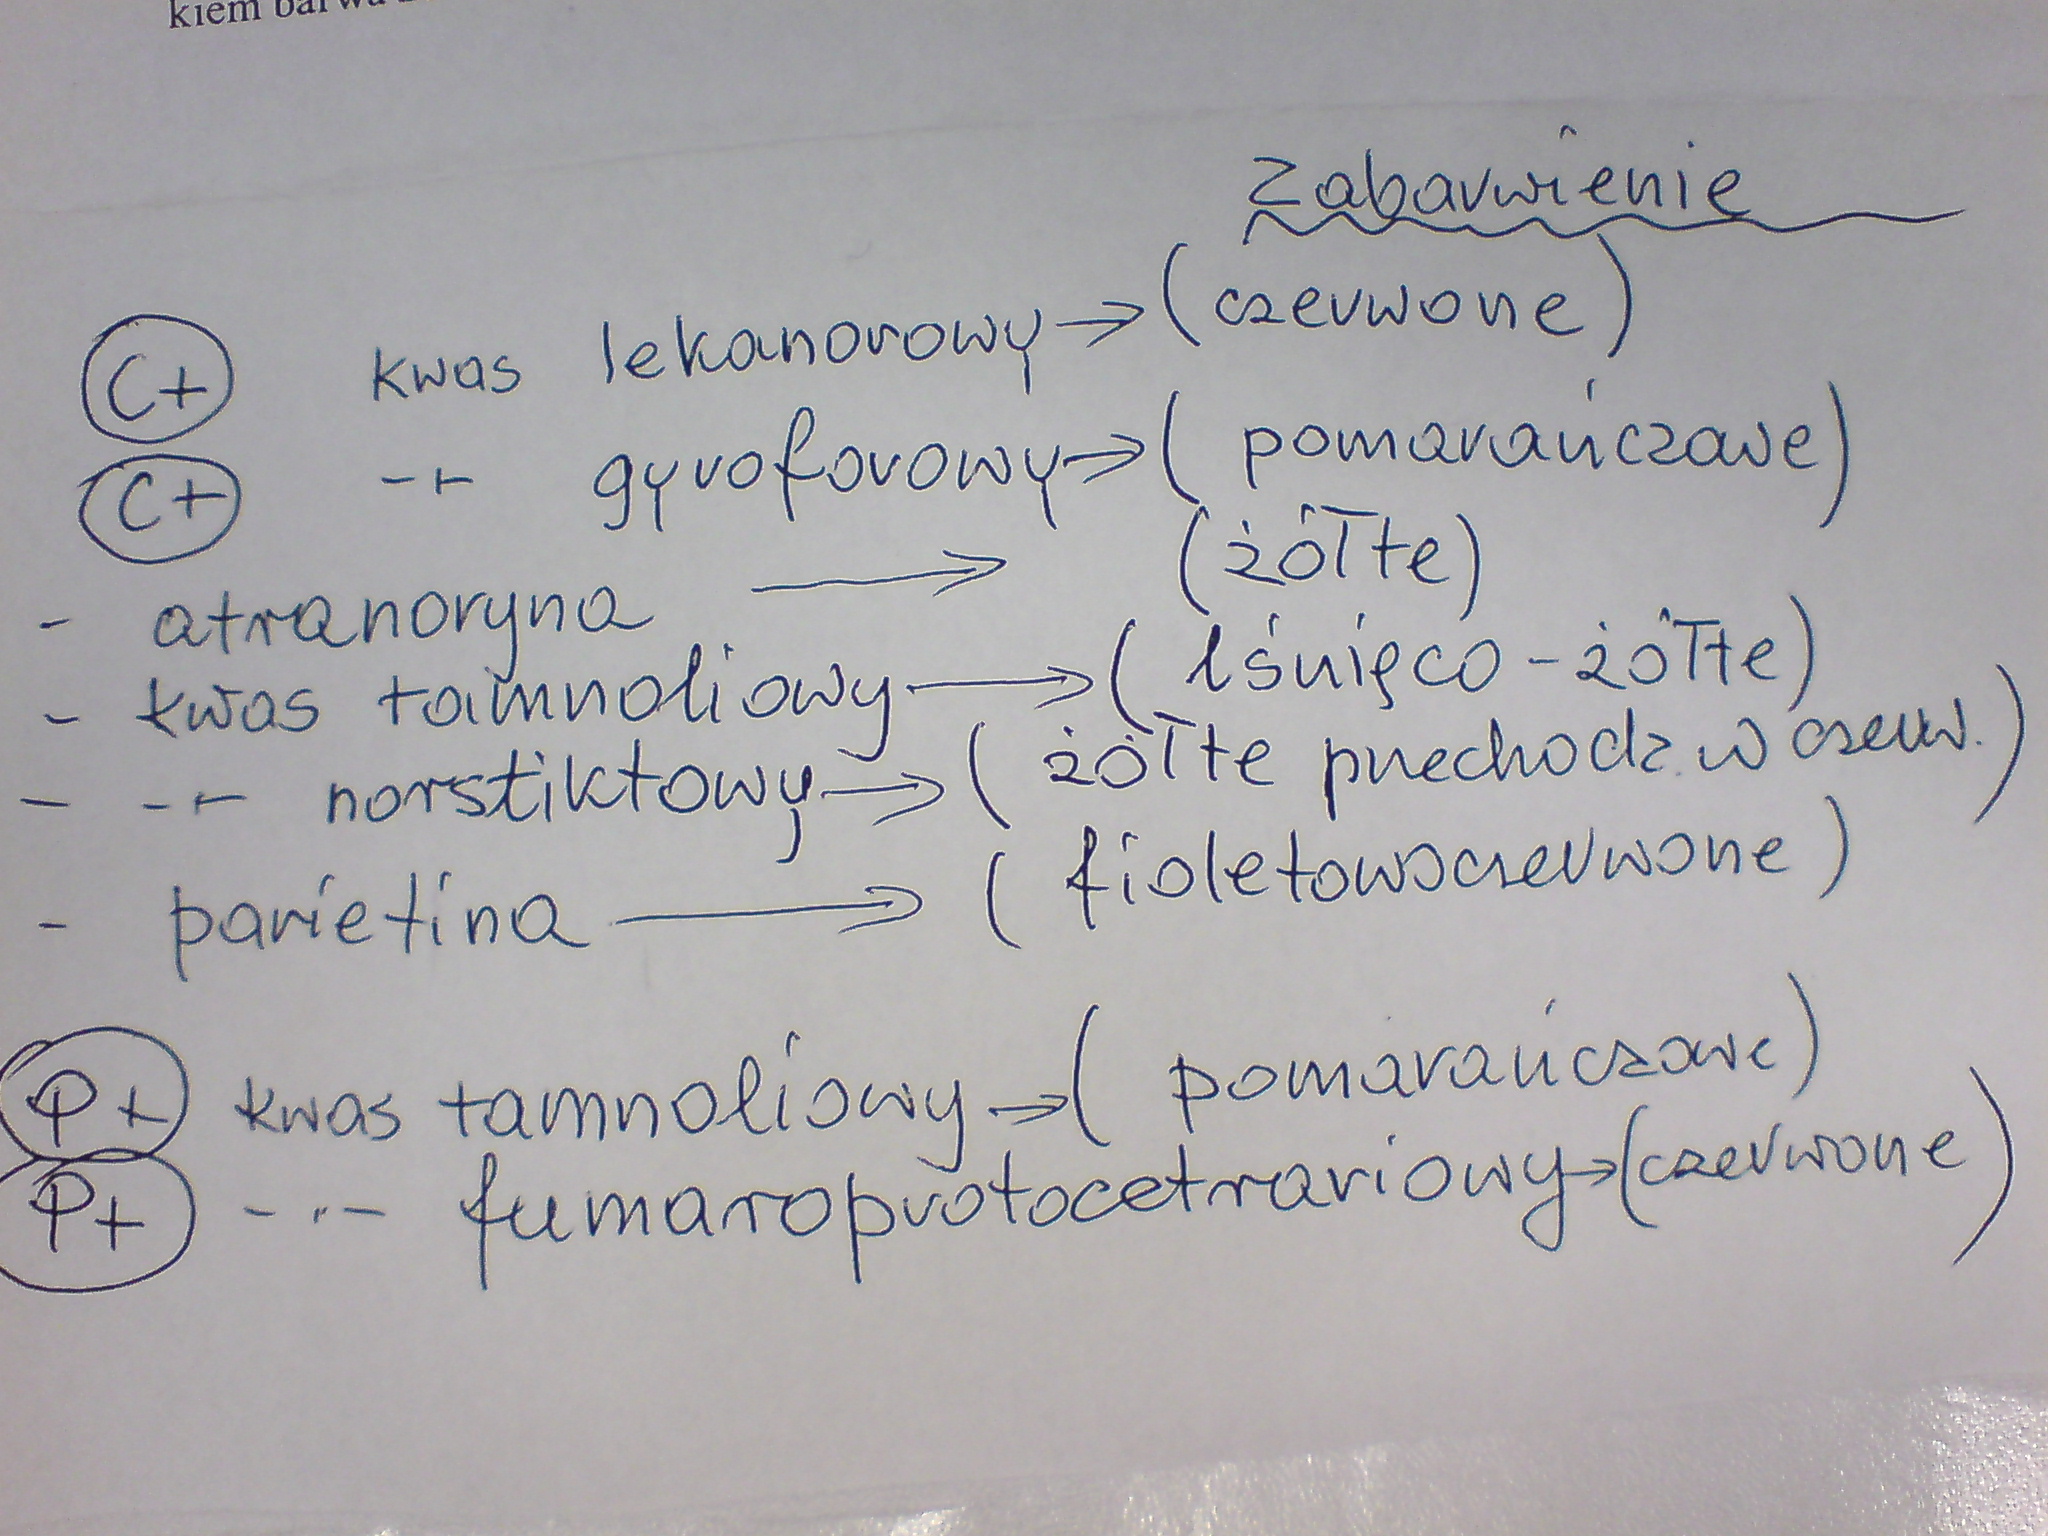 kiem barwa
Zabarwienie
C+ kwas lekanorowy → (czerwone)
C+ -"- gyroforowy → (pomarańczowe)
- atranoryna → (żółte)
- kwas tamnoliowy → (lśnięco-żółte)
- -"- norstiktowy → (żółte przechodz. w czerw.)
- parietina → (fioletowoczerwone)
P+ kwas tamnoliowy → (pomarańczowe)
P+ -"- fumaroprotocetrariowy → (czerwone)